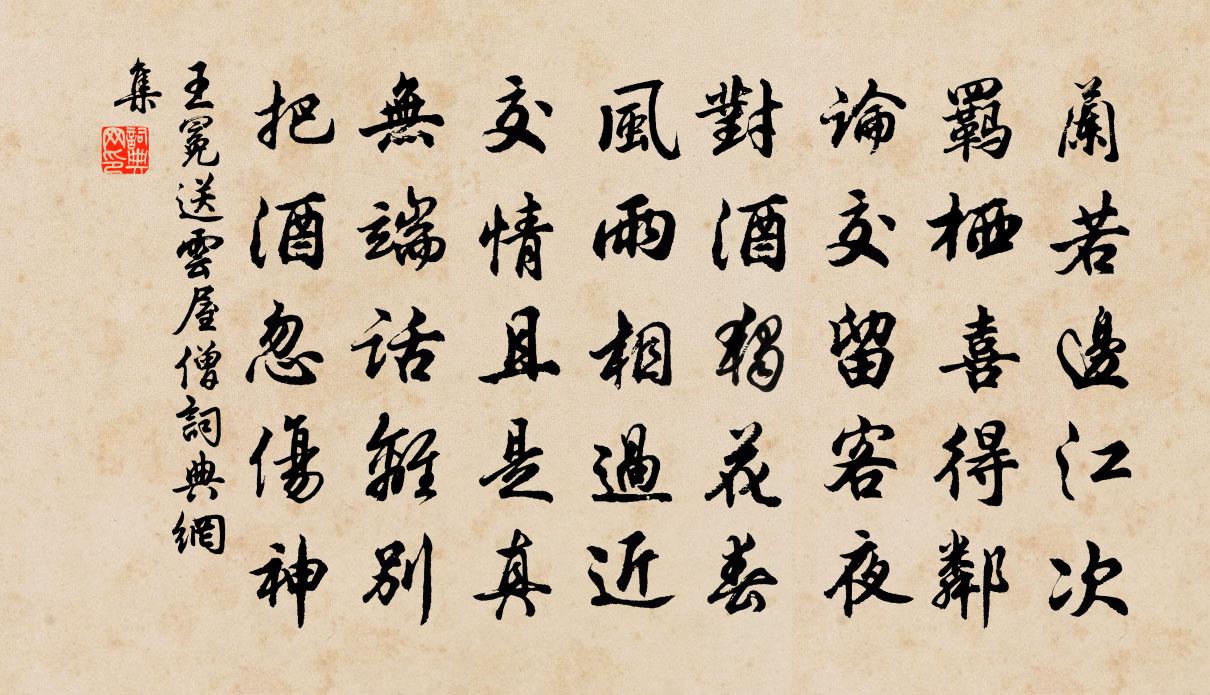 蘭若邊江次
羈栖喜得鄰
論交留客夜
對酒獨花春
風雨相過近
交情且是真
無端話離別
把酒忽傷神
王冕送雲屋僧詞典網
集
詞典
网印